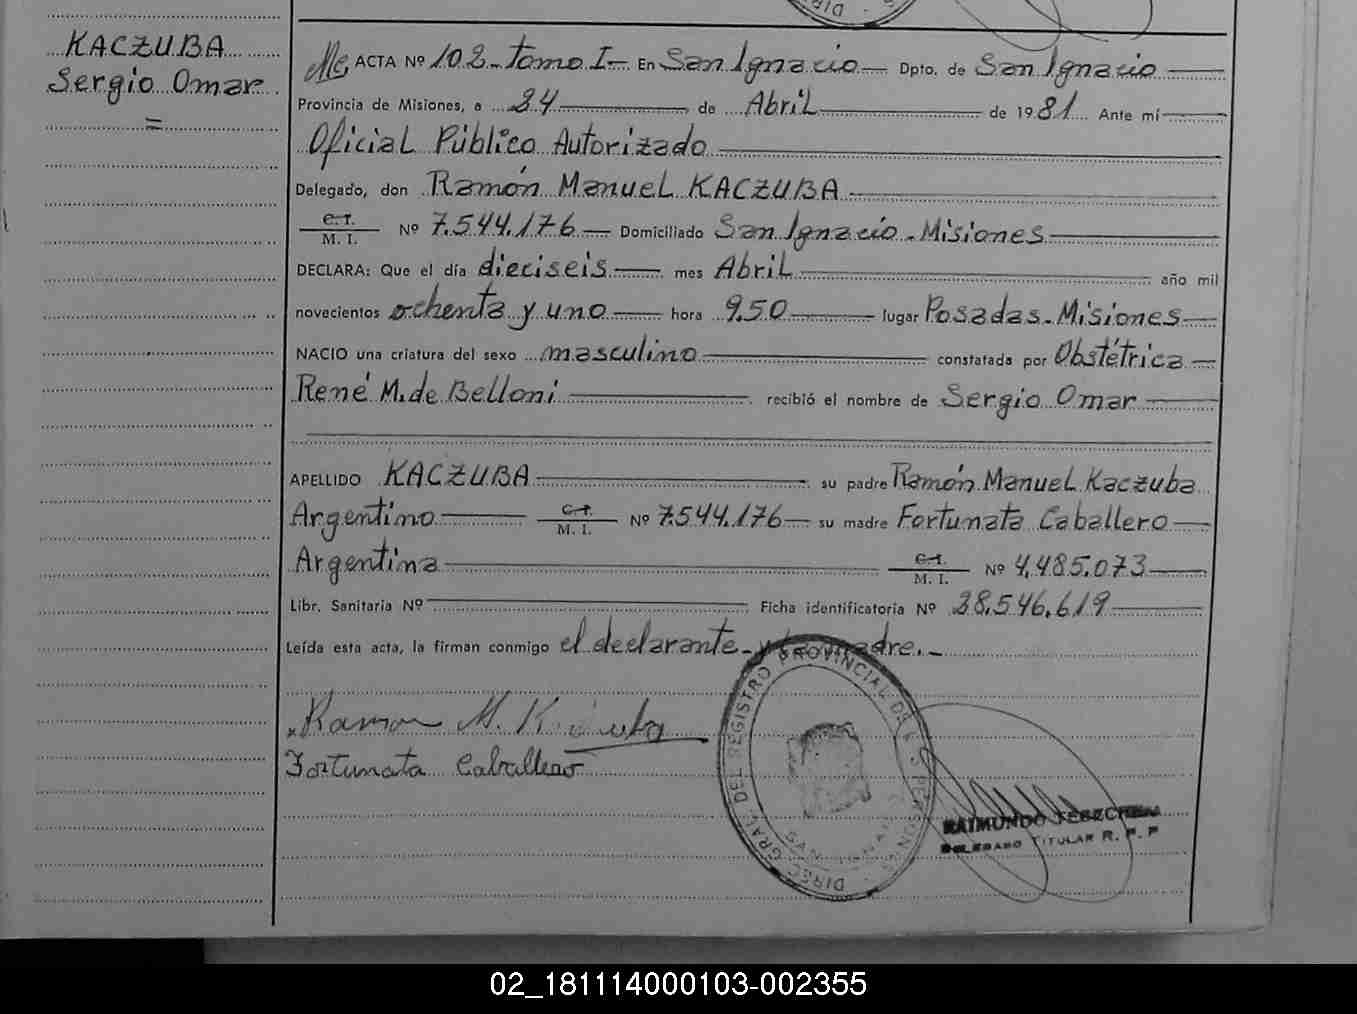 KACZUBA
Sergio Omar
=
ACTA Nº 102 - Tomo I - En San Ignacio - Dpto. de San Ignacio
Provincia de Misiones, a 24 de Abril de 1981 Ante mí
Oficial Público Autorizado
Delegado, don Ramón Manuel KACZUBA
C. I. / M. I. Nº 7.544.176 - Domiciliado San Ignacio - Misiones
DECLARA: Que el día dieciseis mes Abril año mil
novecientos ochenta y uno hora 9,50 lugar Posadas - Misiones
NACIO una criatura del sexo masculino constatada por Obstétrica
René M. de Belloni recibió el nombre de Sergio Omar
APELLIDO KACZUBA su padre Ramón Manuel Kaczuba
Argentino C. I. / M. I. Nº 7.544.176 - su madre Fortunata Caballero
Argentina C. I. / M. I. Nº 4.485.073
Libr. Sanitaria Nº Ficha identificatoria Nº 28.546.619
Leída esta acta, la firman conmigo el declarante - y la madre. -
Ramon M. Kaczuba
Fortunata Caballero
DIREC. GRAL. DEL REGISTRO PROVINCIAL DE LAS PERSONAS
SAN IGNACIO
RAIMUNDO
DELEGADO TITULAR R. P. P.
02_181114000103-002355